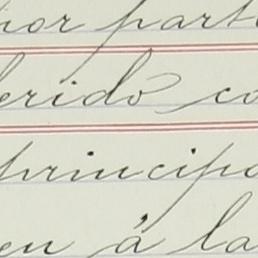 por part
erido co
principa
en á la